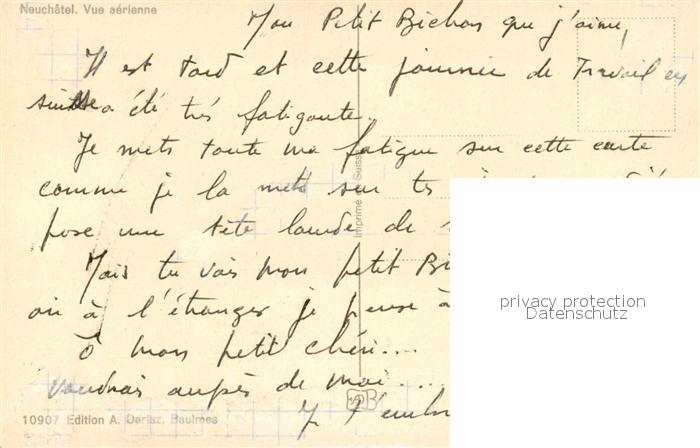 Neuchâtel. Vue aérienne
Mon Petit Bichon que j'aime,
Il est tard et cette journée de Travail en
Suisse a été très fatigante.
Je mets toute ma fatigue sur cette carte
comme je la mets sur tes
pose une tête lourde de
Mais tu vois mon petit Bi
ou à l'étranger je pense à
Ô mon petit chéri....
voudrais auprès de moi....
Je t'embr
Imprimé en Suisse
10907 Edition A. Deriaz, Baulmes
privacy protection
Datenschutz